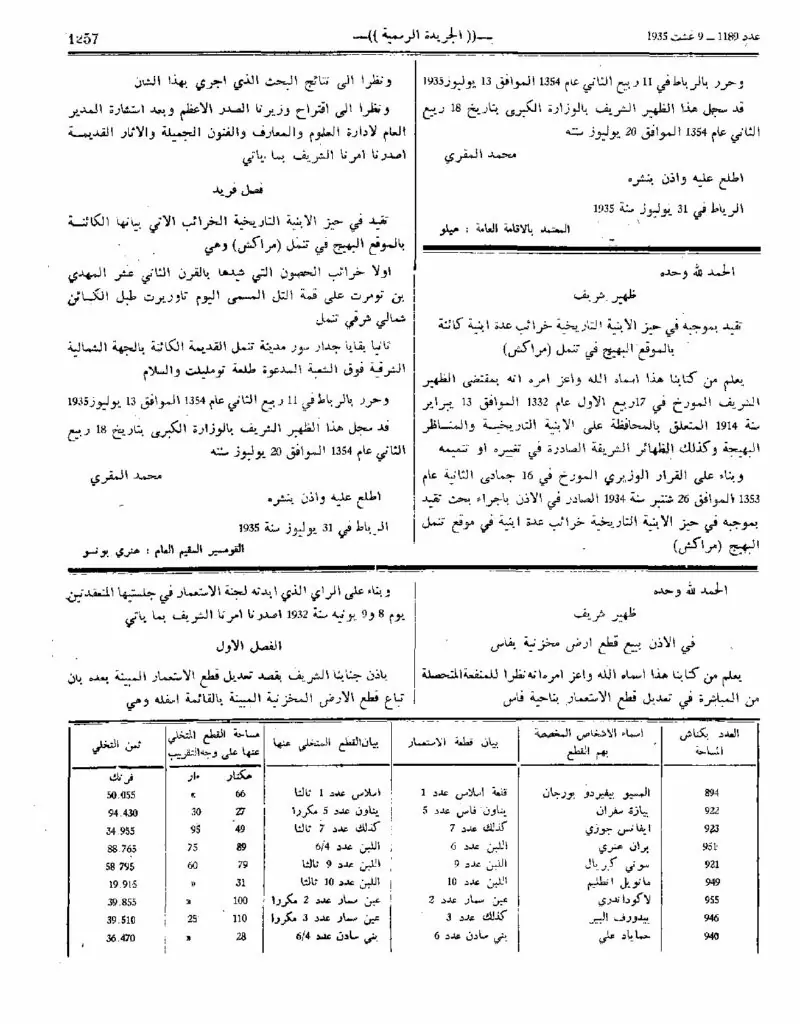 عدد 1189 ــ 9 غشت 1935
ــ(( الجريدة الرسمية ))ــ
1257
وحرر بالرباط في 11 ربيع الثاني عام 1354 الموافق 13 يوليوز 1935
قد سجل هذا الظهير الشريف بالوزارة الكبرى بتاريخ 18 ربيع
الثاني عام 1354 الموافق 20 يوليوز سنته
محمد المقري
اطلع عليه واذن بنشره
الرباط في 31 يوليوز سنة 1935
المعتمد بالاقامة العامة : هيلو
الحمد لله وحده
ظهير شريف
تقيد بموجبه في حيز الابنية التاريخية خرائب عدة ابنية كائنة
بالموقع البهيج في تنمل (مراكش)
يعلم من كتابنا هذا اسماه الله واعز امره انه بمقتضى الظهير
الشريف المورخ في 17 ربيع الاول عام 1332 الموافق 13 يبراير
سنة 1914 المتعلق بالمحافظة على الابنية التاريخية والمناظر
البهيجة وكذلك الظهائر الشريفة الصادرة في تغييره او تتميمه
وبناء على القرار الوزيري المورخ في 16 جمادى الثانية عام
1353 الموافق 26 شتنبر سنة 1934 الصادر في الاذن باجراء بحث تقيد
بموجبه في حيز الابنية التاريخية خرائب عدة ابنية في موقع تنمل
البهيج (مراكش)
ونظرا الى نتائج البحث الذي اجري بهذا الشان
ونظرا الى اقتراح وزيرنا الصدر الاعظم وبعد استشارة المدير
العام لادارة العلوم والمعارف والفنون الجميلة والاثار القديمة
اصدرنا امرنا الشريف بما ياتي
فصل فريد
تقيد في حيز الابنية التاريخية الخرائب الاتي بيانها الكائنة
بالموقع البهيج في تنمل (مراكش) وهي
اولا خرائب الحصون التي شيدها بالقرن الثاني عشر المهدي
بن تومرت على قمة التل المسمى اليوم تاوريرت طبل الكائن
شمالي شرقي تنمل
ثانيا بقايا جدار سور مدينة تنمل القديمة الكائنة بالجهة الشمالية
الشرقية فوق الشعبة المدعوة طلعة تومليلت والسلام
وحرر بالرباط في 11 ربيع الثاني عام 1354 الموافق 13 يوليوز 1935
قد سجل هذا الظهير الشريف بالوزارة الكبرى بتاريخ 18 ربيع
الثاني عام 1354 الموافق 20 يوليوز سنته
محمد المقري
اطلع عليه واذن بنشره
الرباط في 31 يوليوز سنة 1935
القومسير المقيم العام : هنري بونسو
الحمد لله وحده
ظهير شريف
في الاذن ببيع قطع ارض مخزنية بفاس
يعلم من كتابنا هذا اسماه الله واعز امره انه نظرا للمنفعة المتحصلة
من المباشرة في تعديل قطع الاستعمار بناحية فاس
وبناء على الراي الذي ابدته لجنة الاستعمار في جلستيها المنعقدتين
يوم 8 و9 يونيه سنة 1932 اصدرنا امرنا الشريف بما ياتي
الفصل الاول
ياذن جنابنا الشريف بقصد تعديل قطع الاستعمار المبينة بعده بان
تباع قطع الارض المخزنية المبينة بالقائمة اسفله وهي
العدد بكناش المساحة | اسماء الاشخاص المخصصة بهم القطع | بيان قطعة الاستعمار | بيان القطع المتخلى عنها | مساحة القطع المتخلي عنها على وجه التقريب | ثمن التخلي
هكتار | ءار | فرنك
894 | المسيو بيفيردو بورجان | قلعة اسلاس عدد 1 | اسلاس عدد 1 ثالثا | 66 | » | 50.055
922 | بيازة سفران | يناون فاس عدد 5 | يناون عدد 5 مكررا | 27 | 30 | 94.430
923 | ايفانس جوزي | كذلك عدد 7 | كذلك عدد 7 ثالثا | 49 | 95 | 34.955
951 | بران هنري | اللبن عدد 6 | اللبن عدد 6/4 | 89 | 75 | 88.765
921 | سوني كبريال | اللبن عدد 9 | اللبن عدد 9 ثالثا | 79 | 60 | 58 795
949 | مانويل انطليم | اللبن عدد 10 | اللبن عدد 10 ثالثا | 31 | » | 19.915
955 | لاكودا ندري | عين سمار عدد 2 | عين سمار عدد 2 مكررا | 100 | » | 39.855
946 | بيدورف البير | كذلك عدد 3 | عين سمار عدد 3 مكررا | 110 | 25 | 39.510
940 | حمايد علي | بني سادن عدد 6 | بني سادن عدد 6/4 | 28 | » | 36.470